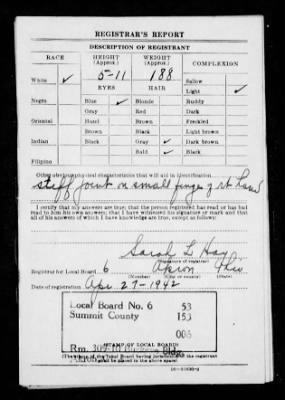 REGISTRAR'S REPORT
DESCRIPTION OF REGISTRANT
RACE HEIGHT (Approx.) WEIGHT (Approx.) COMPLEXION
5-11 188
White ✓ Sallow
EYES HAIR Light ✓
Negro Blue ✓ Blonde Ruddy
Gray Red Dark
Oriental Hazel Brown Freckled
Brown Black Light brown
Indian Black Gray ✓ Dark brown
Bald ✓ Black
Filipino
Other obvious physical characteristics that will aid in identification
stiff joint on small finger of rt hand
I certify that my answers are true; that the person registered has read or has had
read to him his own answers; that I have witnessed his signature or mark and that
all of his answers of which I have knowledge are true, except as follows:
Sarah L Hay
(Signature of registrar)
Registrar for Local Board 6 Akron Ohio
(Number) (City or county) (State)
Date of registration Apr. 27-1942
Local Board No. 6 53
Summit County 153
(STAMP OF LOCAL BOARD)
(The stamp of the Local Board having jurisdiction of the registrant
shall be placed in the above space)